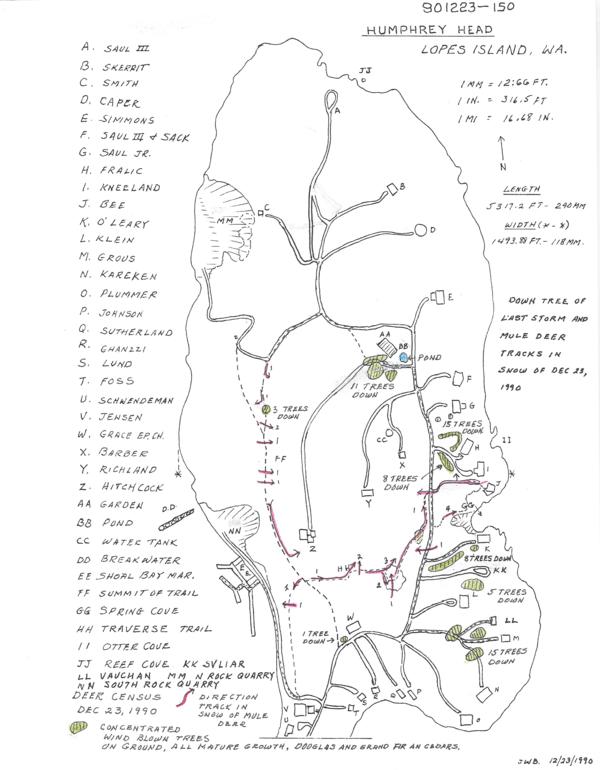 901223-150
HUMPHREY HEAD
LOPES ISLAND, WA.
A. SAUL III
B. SKERRIT
C. SMITH
D. CAPER
E. SIMMONS
F. SAUL III & SACK
G. SAUL JR.
H. FRALIC
I. KNEELAND
J. BEE
K. O'LEARY
L. KLEIN
M. GROUS
N. KAREKEN
O. PLUMMER
P. JOHNSON
Q. SUTHERLAND
R. GHANZZI
S. LUND
T. FOSS
U. SCHWENDEMAN
V. JENSEN
W. GRACE EP. CH.
X. BARBER
Y. RICHLAND
Z. HITCHCOCK
AA GARDEN
BB POND
CC WATER TANK
DD BREAKWATER
EE SHOAL BAY MAR.
FF SUMMIT OF TRAIL
GG SPRING COVE
HH TRAVERSE TRAIL
II OTTER COVE
JJ REEF COVE KK SVLIAR
LL VAUGHAN MM N ROCK QUARRY
NN SOUTH ROCK QUARRY
DEER CENSUS
DEC 23, 1990
DIRECTION
TRACK IN
SNOW OF MULE
DEER
CONCENTRATED
WIND BLOWN TREES
ON GROUND, ALL MATURE GROWTH, DOUGLAS AND GRAND FIR AN CEDARS.
1 MM = 12.66 FT.
1 IN. = 316.5 FT
1 MI = 16.68 IN.
N
LENGTH
5317.2 FT - 290MM
WIDTH (* - *)
1493.88 FT. - 118MM.
DOWN TREE OF
LAST STORM AND
MULE DEER
TRACKS IN
SNOW OF DEC 23,
1990
JJ
A
B
C
MM
D
E
AA
BB
POND
11 TREES
DOWN
F
G
3 TREES
DOWN
15 TREES
DOWN
II
H
CC
X
FF
8 TREES
DOWN
I
J
Y
*
*
D.D.
GG
NN
Z
K
8 TREES DOWN
KK
EE
HH
5 TREES
DOWN
L
LL
M
15 TREES
DOWN
W
1 TREE
DOWN
N
O
P
Q
R
S
T
U
V
JWB. 12/23/1990